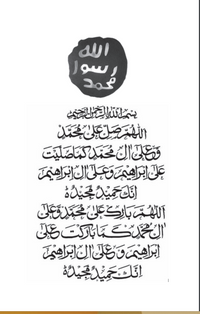 الله
رسول
محمد
بسم الله الرحمن الرحيم
اللهم صل على محمد
وعلى ال محمد كما صليت
على ابراهيم وعلى ال ابراهيم
انك حميد مجيد
اللهم بارك على محمد وعلى
ال محمد كما باركت على
ابراهيم وعلى ال ابراهيم
انك حميد مجيد